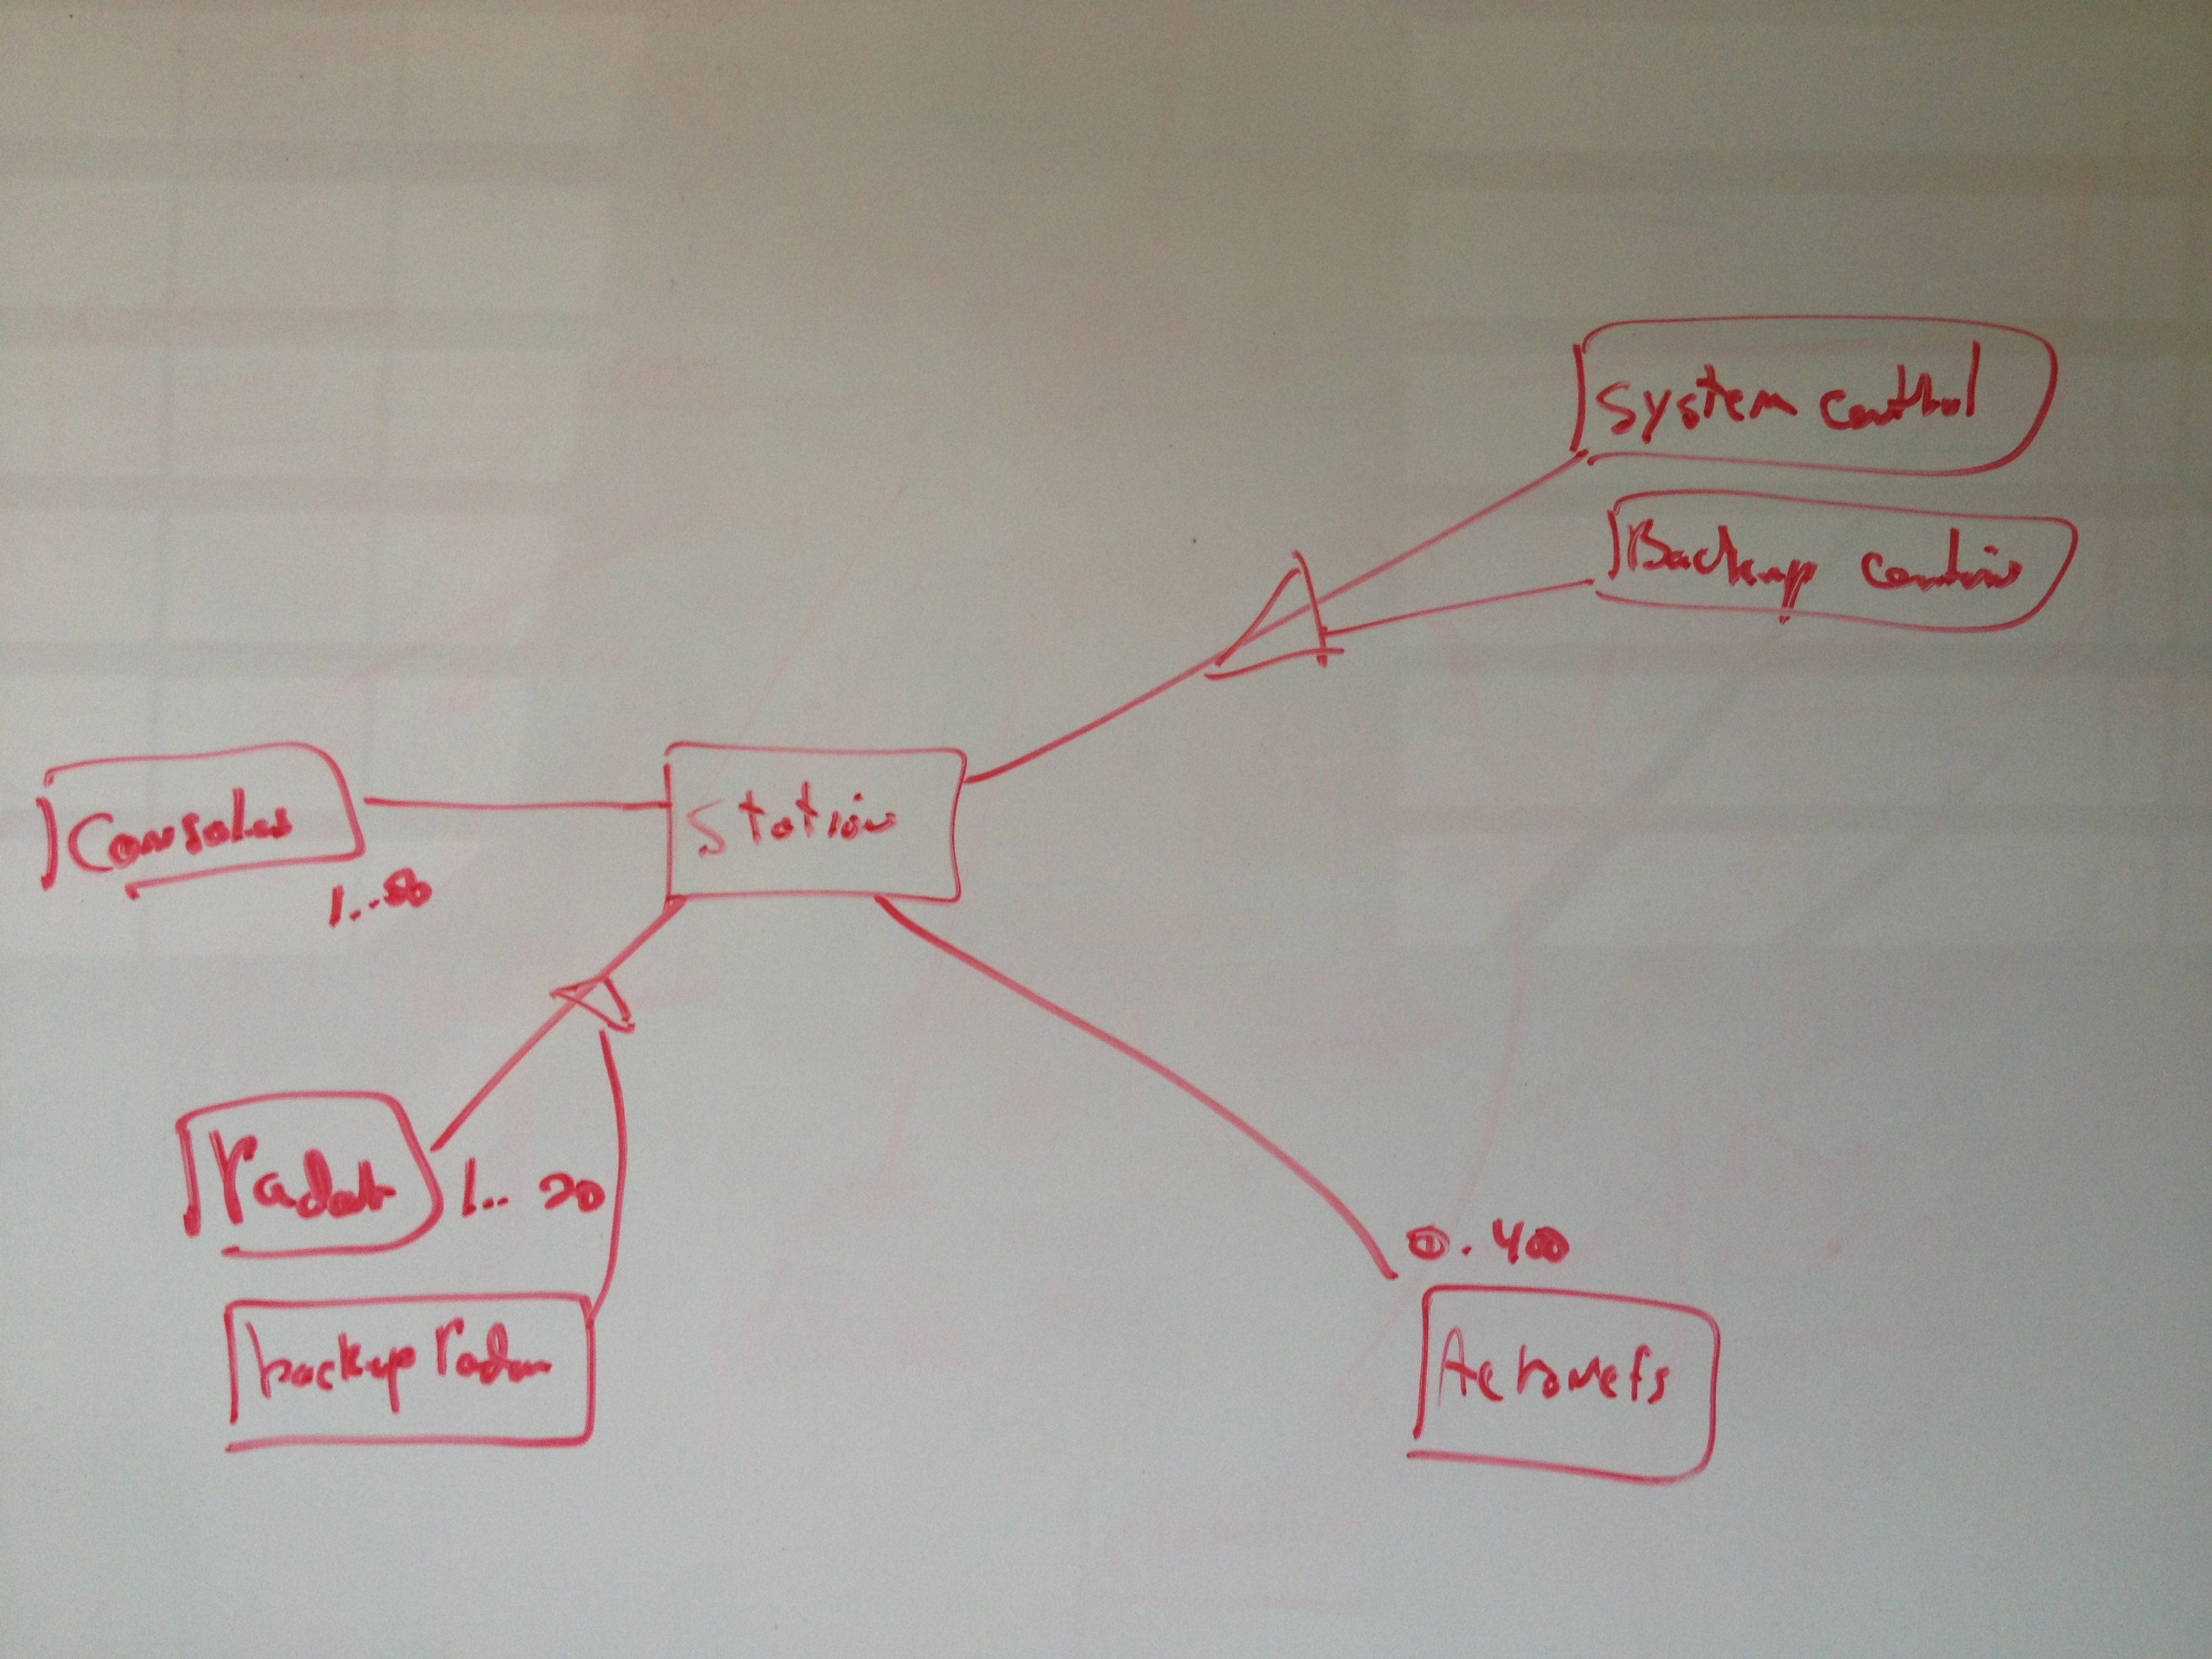 System control
Backup control
Consoles
Station
1..50
radar
1.. 20
0. 400
backup radar
Aircrafts